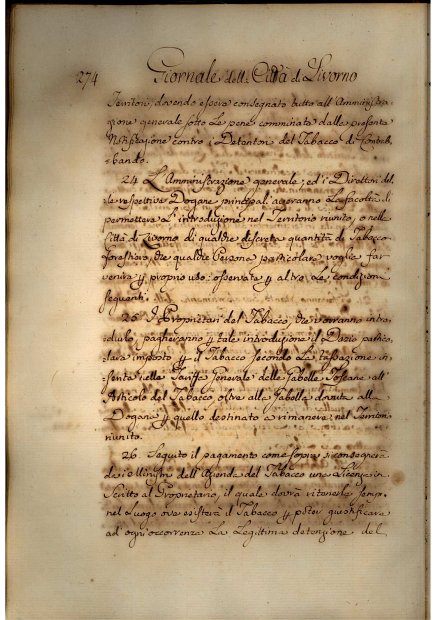 274 Giornale della Città di Livorno
Territori, dovendo essere consegnato tutto all'Amministra-
zione generale sotto le pene comminate dalla presente
Notificazione contro i Detentori del Tabacco di Contrab-
bando.
24. L'Amministrazione generale, ed i Direttori del-
le respettive Dogane principali avranno la facoltà di
permettere l'introduzione nel Territorio riunito, o nella
Città di Livorno di qualche discreta quantità di Tabacco
forestiero, che qualche Persona particolare voglia far
venire p proprio uso: osservate p altro le condizioni
seguenti.
25. I Proprietari del Tabacco, che vorranno intro-
durlo, pagheranno p tale introduzione il Dazio partico-
lare imposto p il Tabacco secondo la tassazione in-
serita nella Tariffa Generale delle Gabelle Toscane all'
Articolo del Tabacco, oltre alla Gabella dovuta alla
Dogana p quello destinato a rimanere nel Territorio
riunito.
26. Seguito il pagamento come sopra si consegnerà
dell'Azienda del Tabacco una Licenza in
Scritto al Proprietario, il quale dovrà ritenerla sempre
nel Luogo ove esisterà il Tabacco p poter giustificare
ad ogni occorrenza la legittima detenzione del